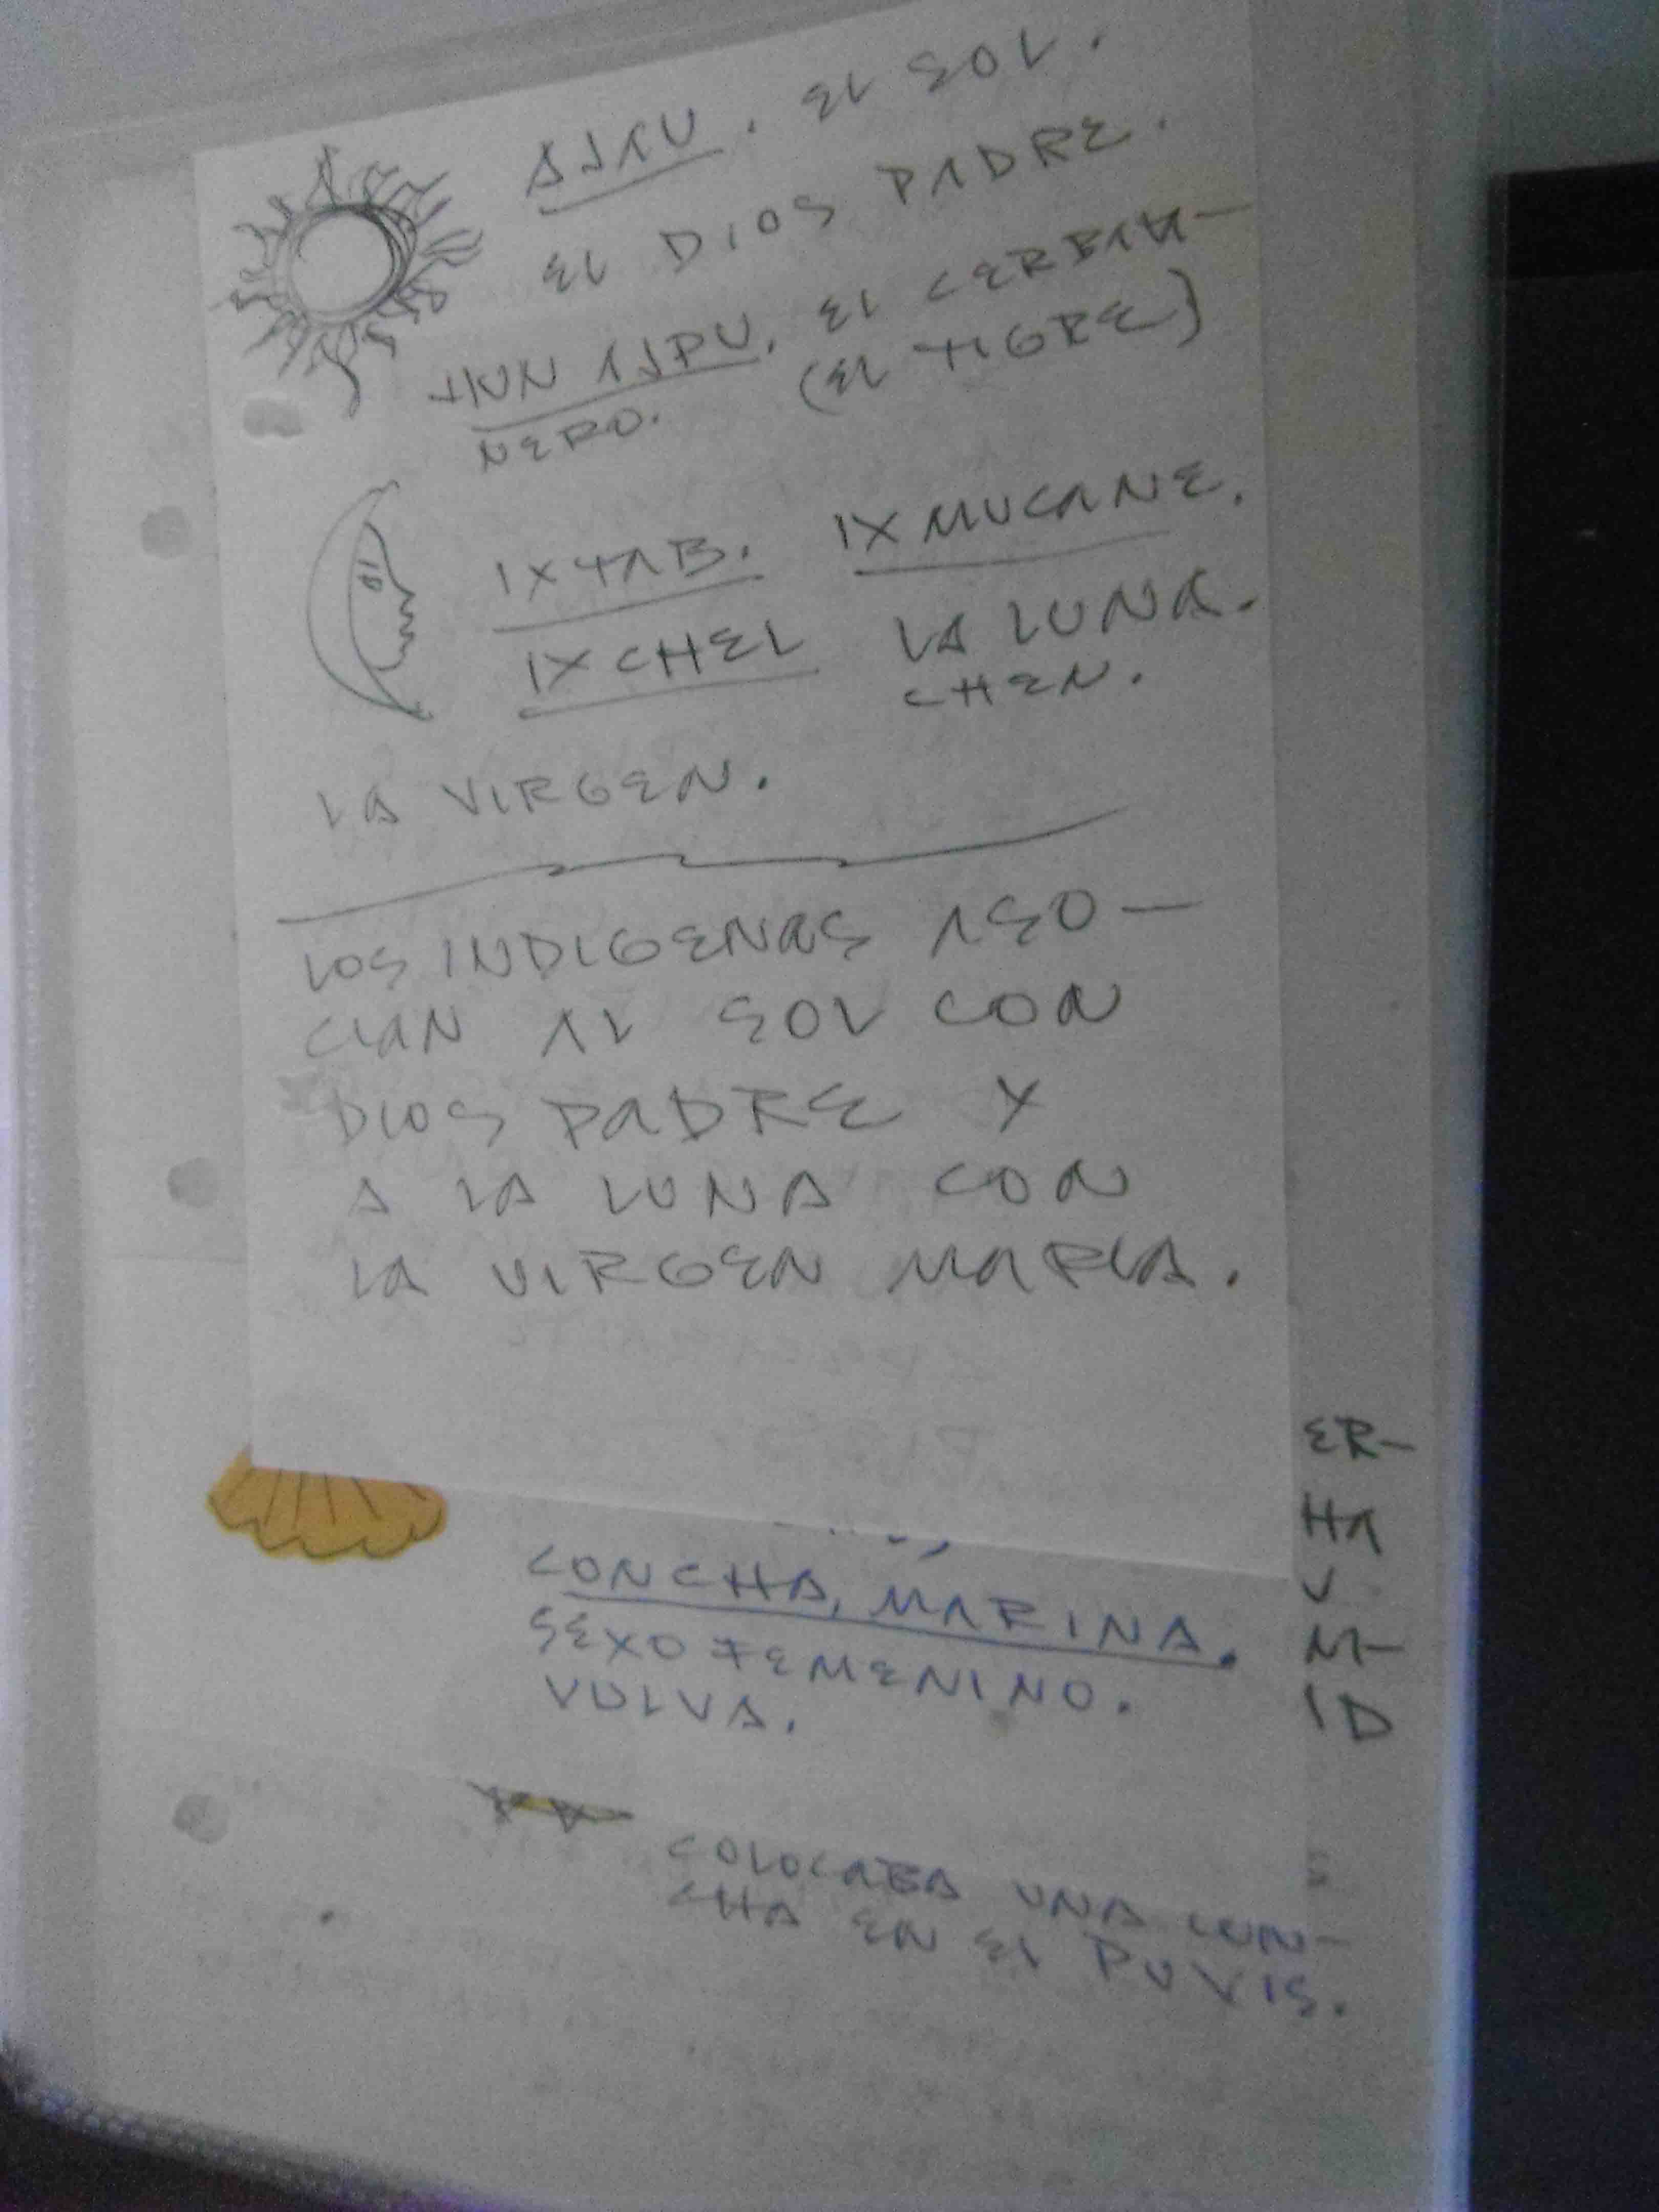 AJAU. EL SOL.
EL DIOS PADRE.
HUN AJPU. EL CERBAH-
NERO. (EL TIGRE)
IXTAB. IXMUCANE.
IXCHEL LA LUNA.
CHEN.
LA VIRGEN.
LOS INDIGENAS ASO-
CIAN AL SOL CON
DIOS PADRE Y
A LA LUNA CON
LA VIRGEN MARIA.
ER-
HA
U
M-
ID
CONCHA, MARINA.
SEXO FEMENINO.
VULVA.
COLOCABA UNA CON-
CHA EN EL PUVIS.